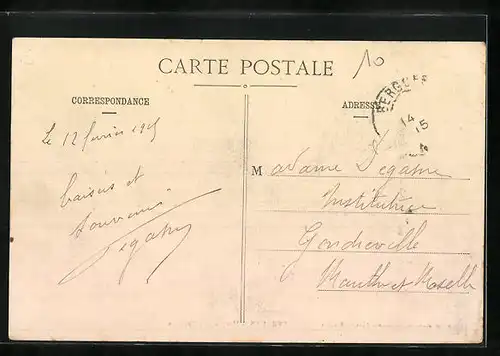 10
CARTE POSTALE
CORRESPONDANCE
ADRESSE
BERGUES
14
15
Le 12 février 1915
Baisers et
souvenirs.
Degatne
Madame Degatne
Institutrice
Gondreville
Meurthe et Moselle